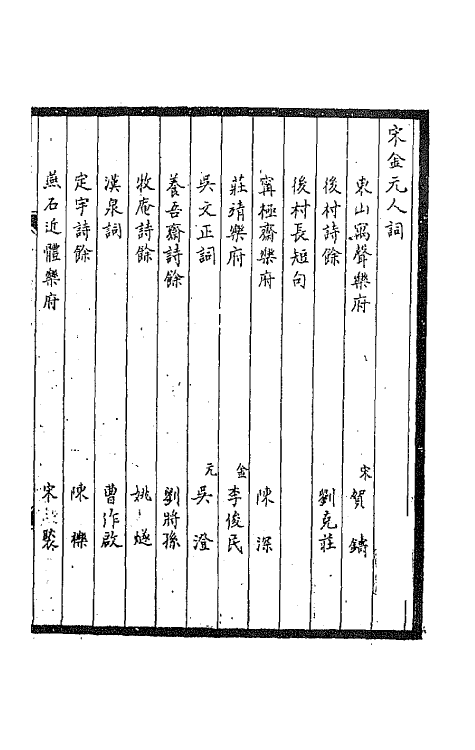 宋金元人詞
東山寓聲樂府 宋 賀鑄
後村詩餘 劉克莊
後村長短句
寗極齋樂府 陳深
莊靖樂府 金 李俊民
吳文正詞 元 吳澄
養吾齋詩餘 劉將孫
牧庵詩餘 姚燧
漢泉詞 曹伯啟
定宇詩餘 陳櫟
燕石近體樂府 宋褧